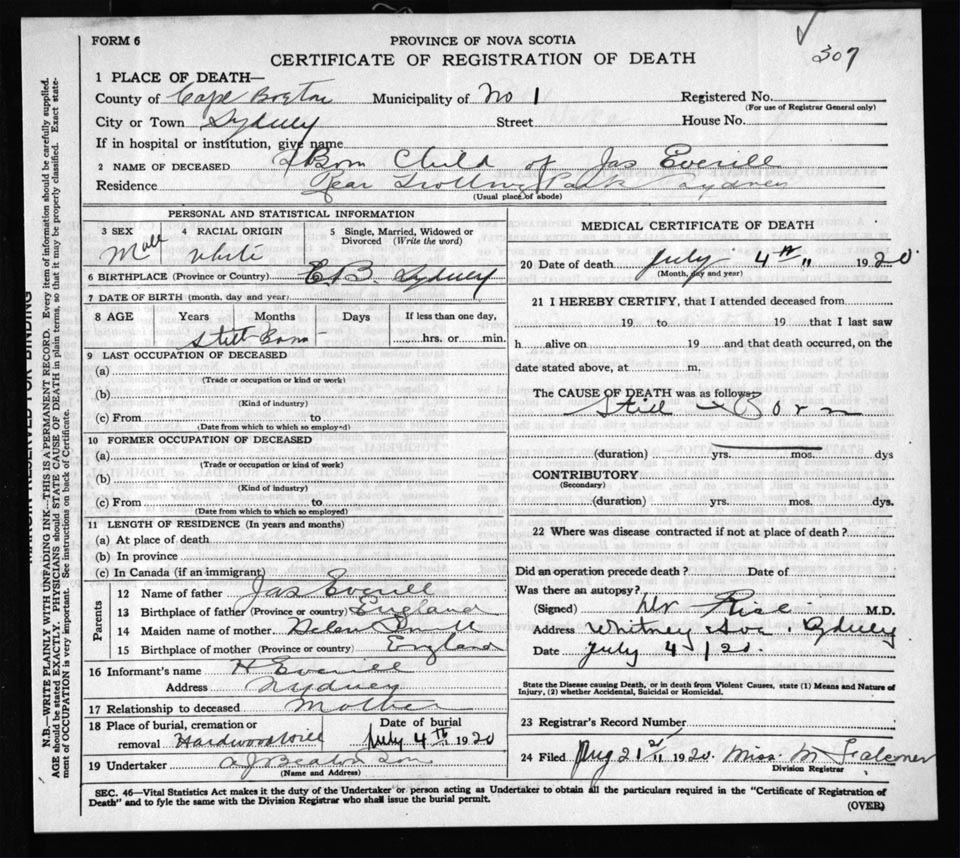 FORM 6
PROVINCE OF NOVA SCOTIA
307
CERTIFICATE OF REGISTRATION OF DEATH
1 PLACE OF DEATH—
County of Cape Breton Municipality of No 1 Registered No.
(For use of Registrar General only)
City or Town Sydney Street House No.
If in hospital or institution, give name
2 NAME OF DECEASED Born Child of Jas Everill
Residence Rear Park Sydney
(Usual place of abode)
PERSONAL AND STATISTICAL INFORMATION
3 SEX 4 RACIAL ORIGIN 5 Single, Married, Widowed or
Divorced (Write the word)
Male White
6 BIRTHPLACE (Province or Country) C.B. Sydney
7 DATE OF BIRTH (month, day and year)
8 AGE Years Months Days If less than one day,
Still Born hrs. or min.
9 LAST OCCUPATION OF DECEASED
(a)
(Trade or occupation or kind or work)
(b)
(Kind of industry)
(c) From to
(Date from which to which so employed)
10 FORMER OCCUPATION OF DECEASED
(a)
(Trade or occupation or kind of work)
(b)
(Kind of industry)
(c) From to
(Date from which to which so employed)
11 LENGTH OF RESIDENCE (In years and months)
(a) At place of death
(b) In province
(c) In Canada (if an immigrant)
Parents
12 Name of father Jas Everill
13 Birthplace of father (Province or country) England
14 Maiden name of mother Helen
15 Birthplace of mother (Province or country) England
16 Informant's name H Everill
Address Sydney
17 Relationship to deceased Mother
18 Place of burial, cremation or Date of burial
removal Hardwood Hill July 4th 1920
19 Undertaker A J Beaton Son
(Name and Address)
MEDICAL CERTIFICATE OF DEATH
20 Date of death July 4th 1920
(Month, day and year)
21 I HEREBY CERTIFY, that I attended deceased from
19 to 19 that I last saw
h alive on 19 and that death occurred, on the
date stated above, at m.
The CAUSE OF DEATH was as follows:
Still-Born
(duration) yrs. mos. dys
CONTRIBUTORY
(Secondary)
(duration) yrs. mos. dys.
22 Where was disease contracted if not at place of death?
Did an operation precede death? Date of
Was there an autopsy?
(Signed) Dr M.D.
Address Whitney Ave. Sydney
Date July 4/20.
State the Disease causing Death, or in death from Violent Causes, state (1) Means and Nature of
Injury, (2) whether Accidental, Suicidal or Homicidal.
23 Registrar's Record Number
24 Filed Aug 21 1920. Miss M Falconer
Division Registrar
SEC. 46—Vital Statistics Act makes it the duty of the Undertaker or person acting as Undertaker to obtain all the particulars required in the "Certificate of Registration of
Death" and to fyle the same with the Division Registrar who shall issue the burial permit.
(OVER)
MARGIN RESERVED FOR BINDING
N.B.—WRITE PLAINLY WITH UNFADING INK—THIS IS A PERMANENT RECORD. Every item of information should be carefully supplied.
AGE should be stated EXACTLY. PHYSICIANS should STATE CAUSE OF DEATH in plain terms, so that it may be properly classified. Exact state-
ment of OCCUPATION is very important. See instructions on back of Certificate.